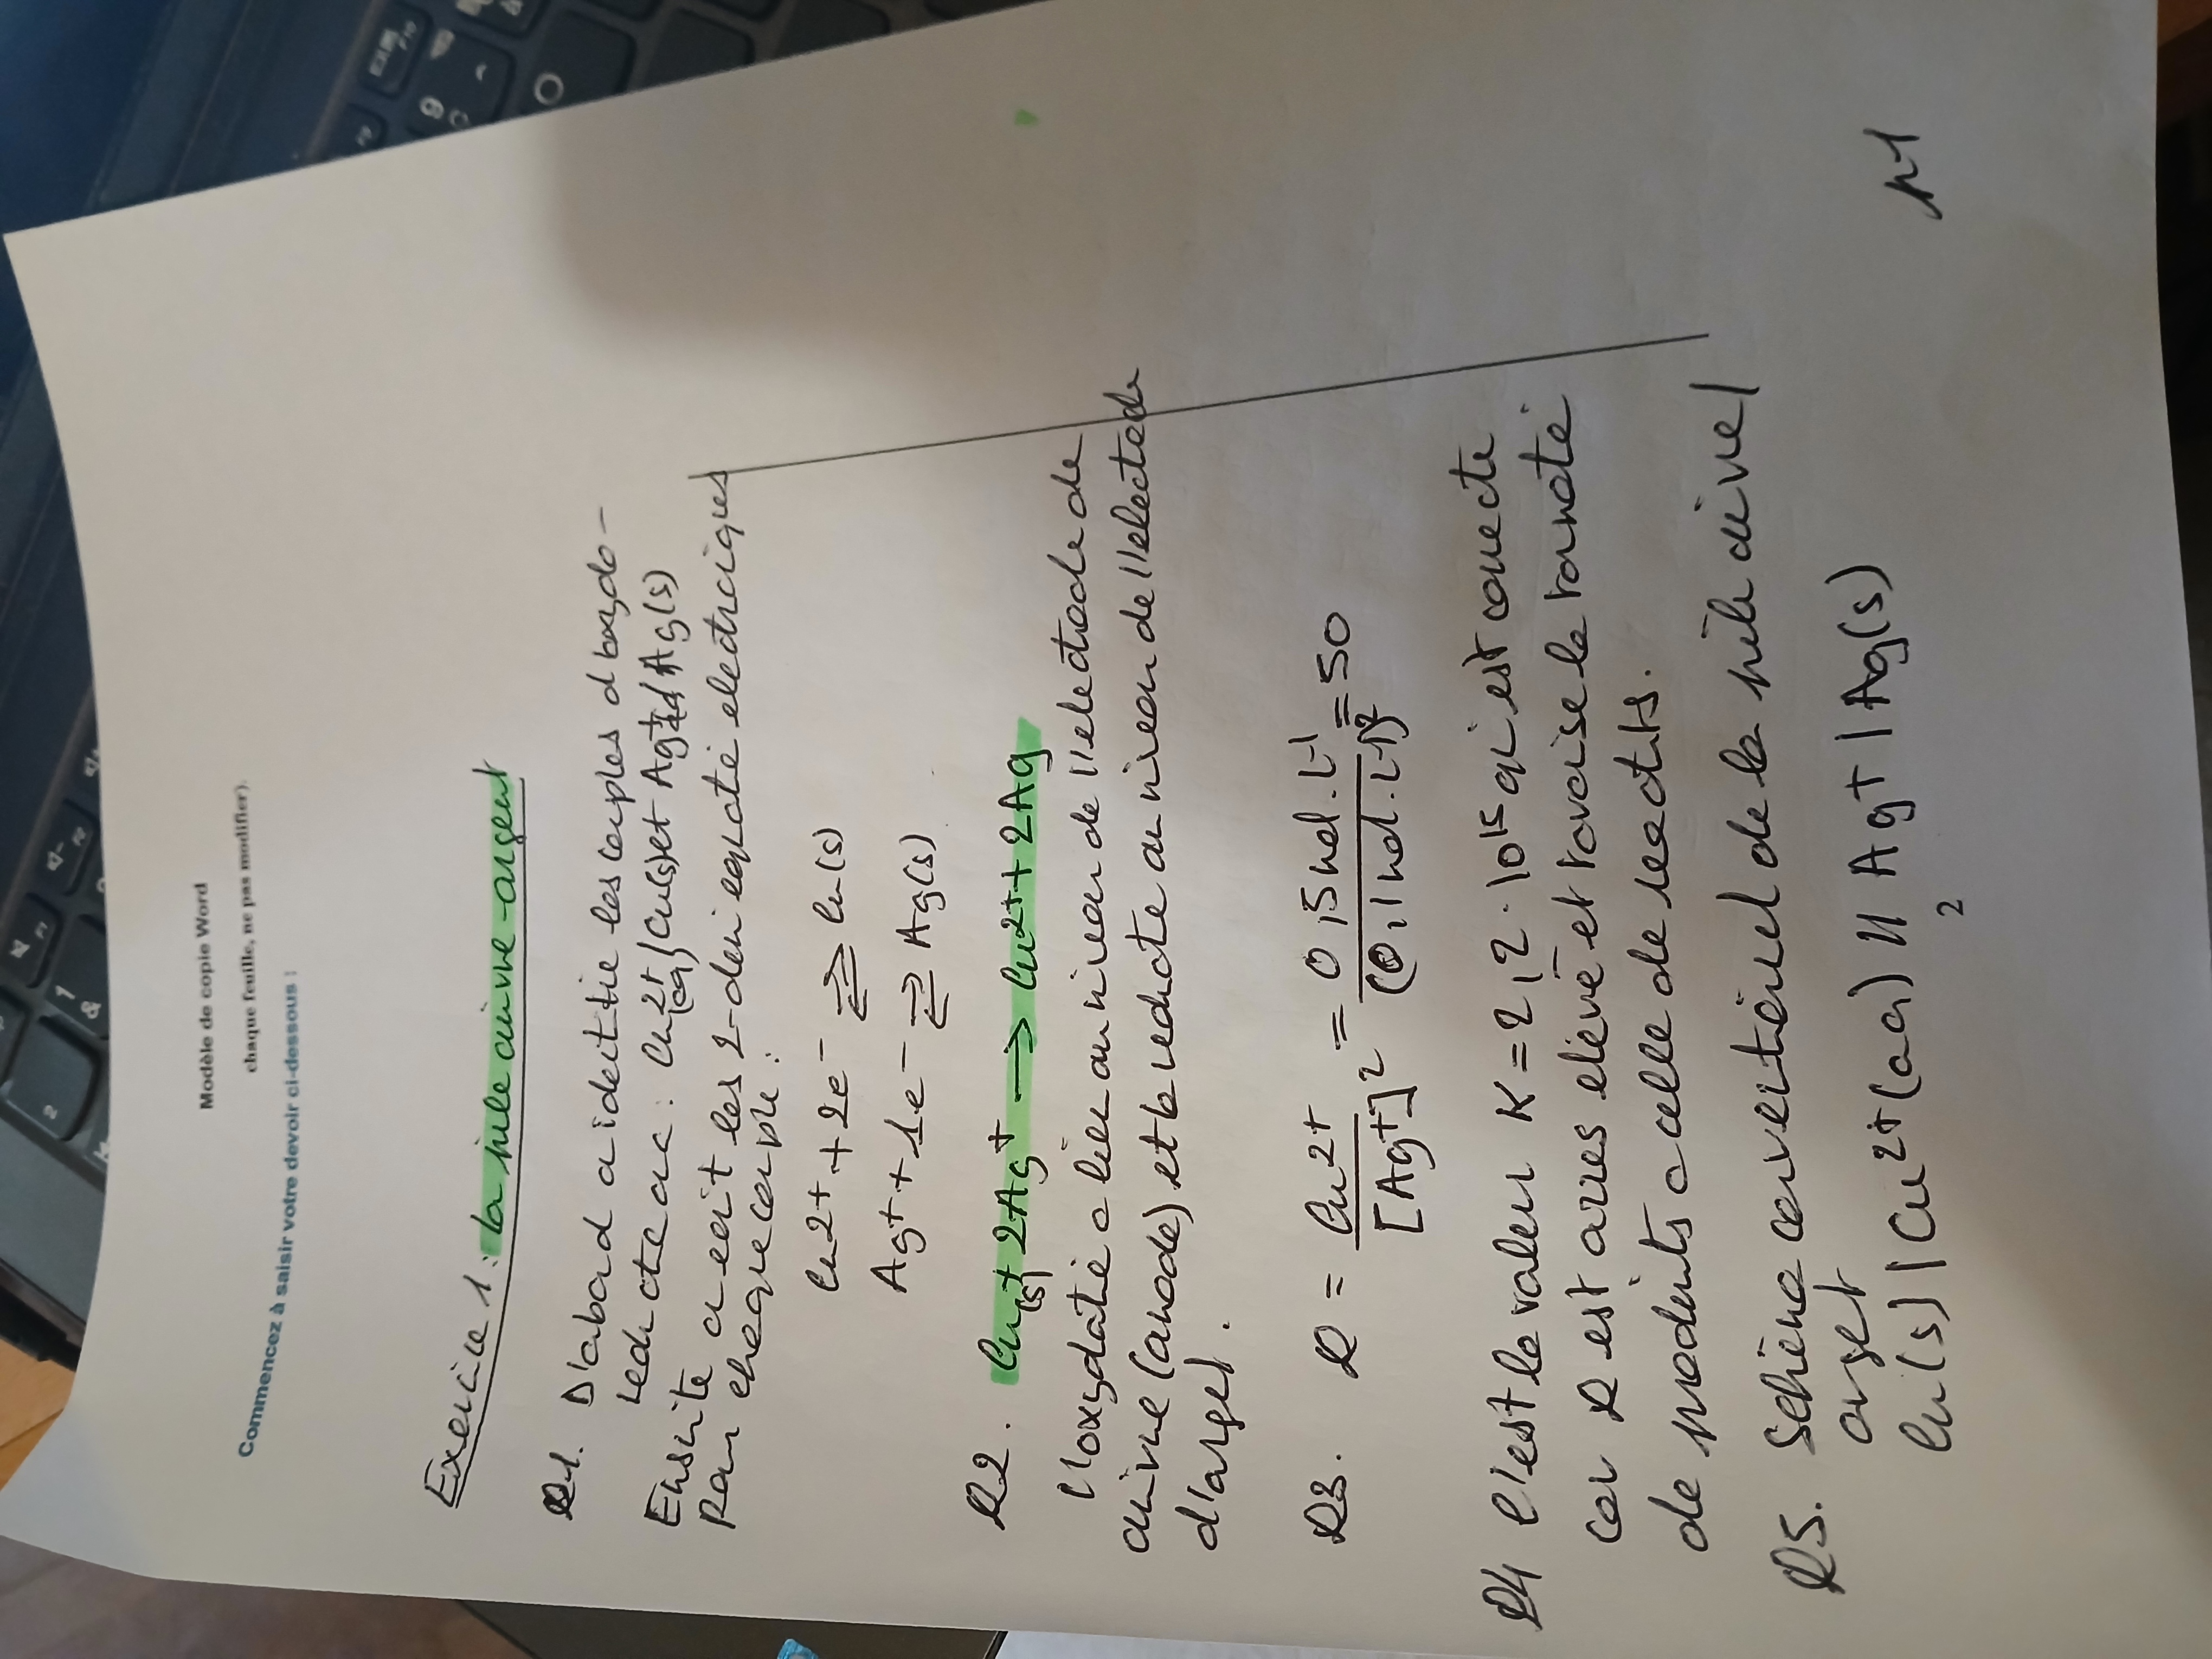 Modèle de copie Word
chaque feuille, ne pas modifier).
Commencez à saisir votre devoir ci-dessous :
Exercice 1 : la pile cuivre-argent
Q1. D'abord a identifie les couples d'oxydo-
reducte ac : Cu2+(aq)/Cu(s) et Ag+ / Ag(s)
Ensuite a ecrit les 2-demi equatie electrociques
Pour cheque couple :
Cu2+ + 2e- ⇌ Cu(s)
Ag+ + 1e- ⇌ Ag(s)
Q2. Cu(s) + 2Ag+ → Cu2+ + 2Ag
L'oxydatie a lieu au niveau de l'electrode de
cuivre (anode) et la reducte au niveau de l'electrode
d'arget.
Q3. Q = Cu2+ / [Ag+]2 = 0,5 mol.L-1 / (0,1 mol.L-1)2 = 50
Q4 C'est la valeur K = 2,2.10^15 qi est correcte
car Q est asses elevé et favorise la formatie
de produits a celle de reactifs.
Q5. Schéma conventionnel de la pile cuivre/
arget
Cu(s) | Cu2+(aq) || Ag+ | Ag(s)
2